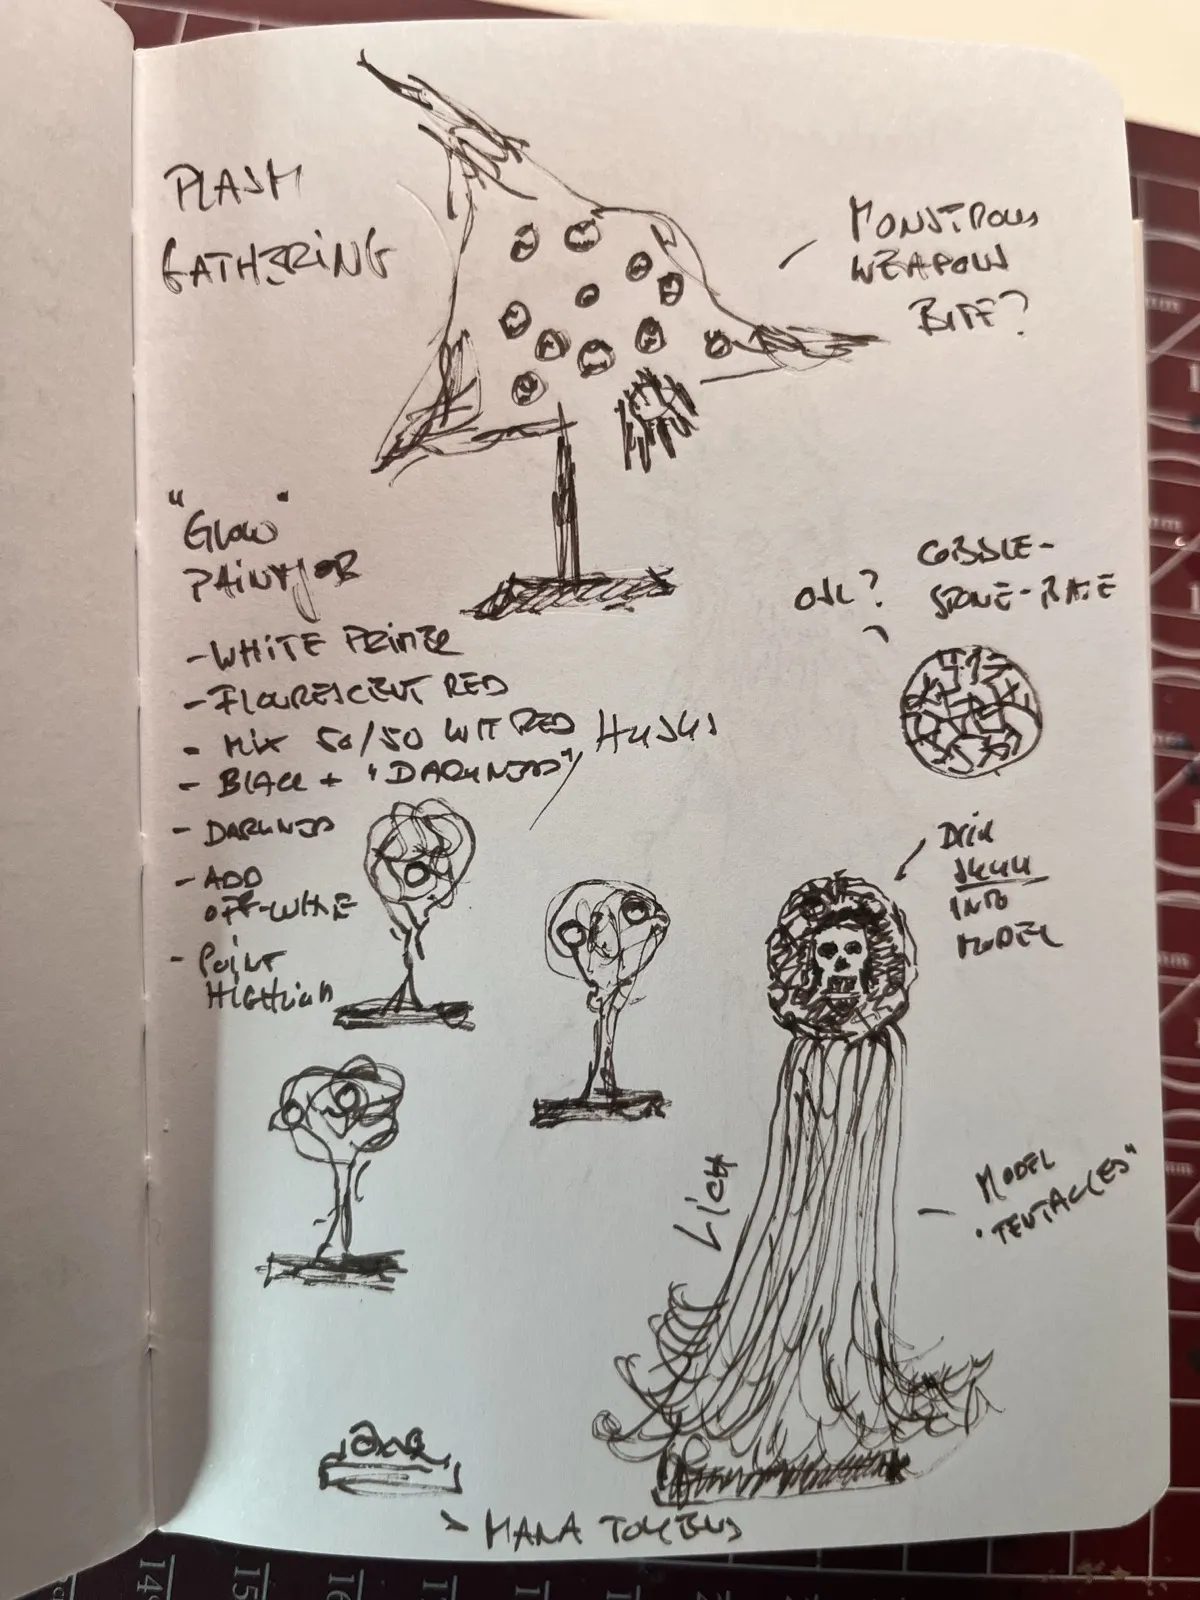 GATHERING
MONSTROUS
WEAPON
BITE?
"GLOW"
PAINTJOB
- WHITE PRIMER
- FLOURESCENT RED
- MIX 50/50 WIT RED
HUSKS
- BLACK + "DARKNESS"
- DARKNESS
- ADD
OFF-WHITE
- POINT
HIGHLIGH
COBBLE-
STONE-BASE
SKULL
INTO
MODEL
LICH
MODEL
"TENTACLES"
> MANA TOKENS